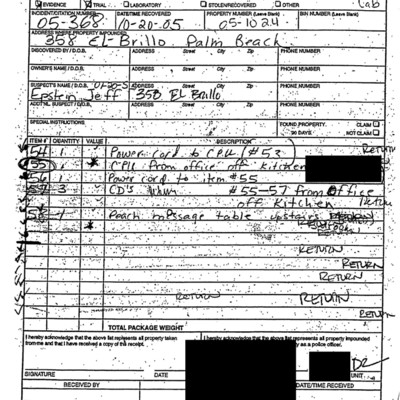 EVIDENCE TRIAL LABORATORY STOLEN/RECOVERED OTHER Lab
INCIDENT/CITATION NUMBER DATE/TIME RECOVERED PROPERTY NUMBER (Leave Blank) BIN NUMBER (Leave Blank)
05-368 10-20-05 05-1024
ADDRESS WHERE PROPERTY IMPOUNDED
358 El-Brillo Palm Beach
DISCOVERED BY / D.O.B. ADDRESS Street City Zip PHONE NUMBER
OWNER'S NAME / D.O.B. ADDRESS Street City Zip PHONE NUMBER
SUSPECT'S NAME / D.O.B. ADDRESS Street City Zip PHONE NUMBER
Epstein, Jeff 358 El Brillo
ADDTNL. SUSPECT / D.O.B. ADDRESS Street City Zip PHONE NUMBER
SPECIAL INSTRUCTIONS FOUND PROPERTY: CLAIM
90 DAYS NOT CLAIM
ITEM # QUANTITY VALUE (DESCRIPTION)
54 1 Power cord to CPU #53 RETURN
55 1 CPU from office off kitchen
56 1 Power cord to item #55
57 3 CD's #55-57 from Office
off Kitchen Return
58 1 massage table upstairs
RETURN
RETURN
RETURN
RETURN
RETURN RETURN
RETURN
TOTAL PACKAGE WEIGHT
I hereby acknowledge that the above list represents all property taken
from me and that I have received a copy of this receipt.
I hereby acknowledge that the above list represents all property impounded
by as a police officer.
SIGNATURE DATE UNIT
RECEIVED BY DATE/TIME RECEIVED